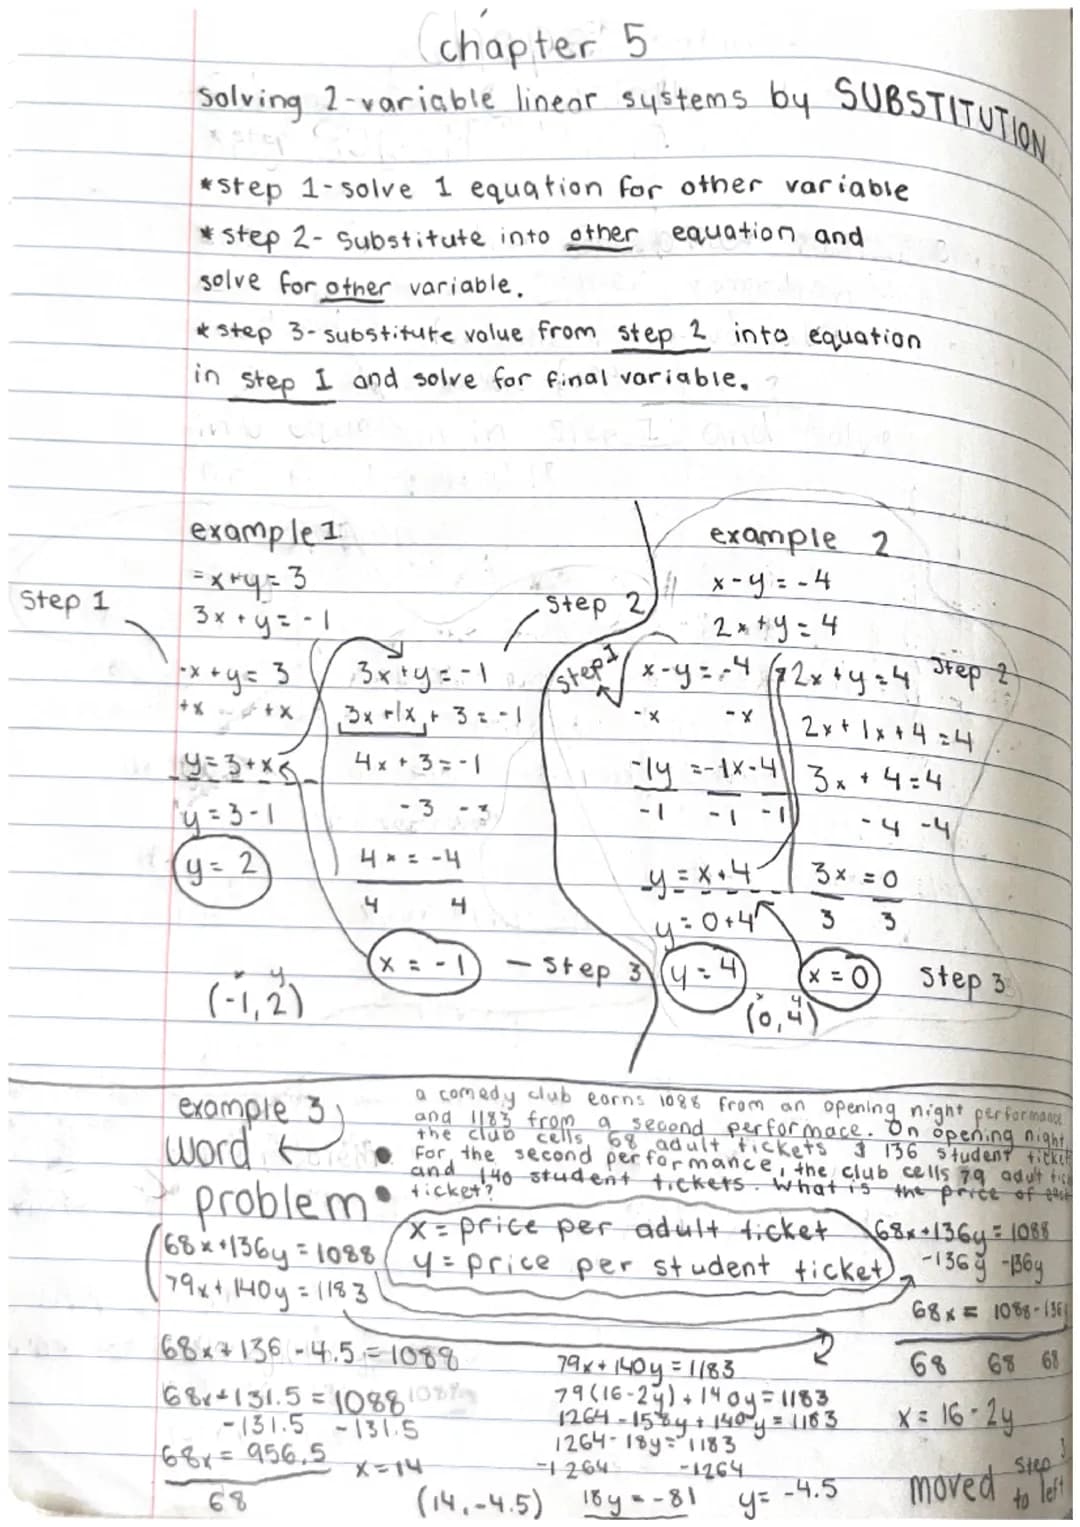 chapter 5
Solving 2-variable linear systems by SUBSTITUTION
*step 1-solve 1 equation for other variable
*step 2- Substitute into other equation and
solve for other variable.
*step 3-substitute value from step 2 into equation
in step 1 and solve for final variable.
example 1
-x+y=3
3x+y=-1
Step 1
-x+y=3
+x +x
y=3+x
y=3-1
y=2
(-1,2)
x y
Step 2
3x+y=-1
3x+1x+3=-1
4x+3=-1
-3 -3
4x=-4
4 4
x=-1 - Step 3
example 2
x-y=-4
2x+y=4
step 1
x-y=-4
-x -x
-1y=-1x-4
-1 -1 -1
y=x+4
y=0+4
y=4
2x+y=4 Step 2
2x+1x+4=4
3x+4=4
-4 -4
3x=0
3 3
x=0 Step 3
x y
(0,4)
example 3
word
problem
a comedy club earns 1088 from an opening night performance
and 1183 from a second performace. On opening night,
the club cells 68 adult tickets & 136 student ticket
For the second performance, the club cells 79 adult tic
and 140 student tickets. What is the price of each
ticket?
x=price per adult ticket
y=price per student ticket
68x+136y=1088
79x+140y=1183
68x+136y=1088
-136y -136y
68x=1088-136
68 68 68
x=16-2y
79x+140y=1183
79(16-2y)+140y=1183
1264-158y+140y=1183
1264-18y=1183
-1264 -1264
18y=-81 y=-4.5
68x+136-4.5=1088
68x+131.5=1088
-131.5 -131.5
68x=956.5
68
x=14
(14,-4.5)
moved step 3
to left